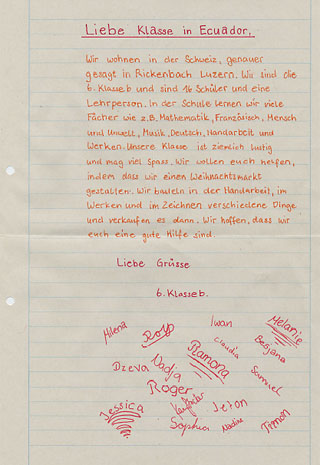 Liebe Klasse in Ecuador,
Wir wohnen in der Schweiz, genauer
gesagt in Rickenbach Luzern. Wir sind die
6. Klasse b und sind 16 Schüler und eine
Lehrperson. In der Schule lernen wir viele
Fächer wie z.B. Mathematik, Französisch, Mensch
und Umwelt, Musik, Deutsch, Handarbeit und
Werken. Unsere Klasse ist ziemlich lustig
und mag viel Spass. Wir wollen euch helfen,
indem das wir einen Weihnachtsmarkt
gestalten. Wir basteln in der Handarbeit, im
Werken und im Zeichnen verschiedene Dinge
und verkaufen es dann. Wir hoffen, dass wir
euch eine gute Hilfe sind.
Liebe Grüsse
6. Klasse b.
Milena Rolf Iwan Melanie
Claudia Besijana
Dzeva Nadja Ramona Samuel
Roger
Jessica Jeton
Sophia Nadine Timon